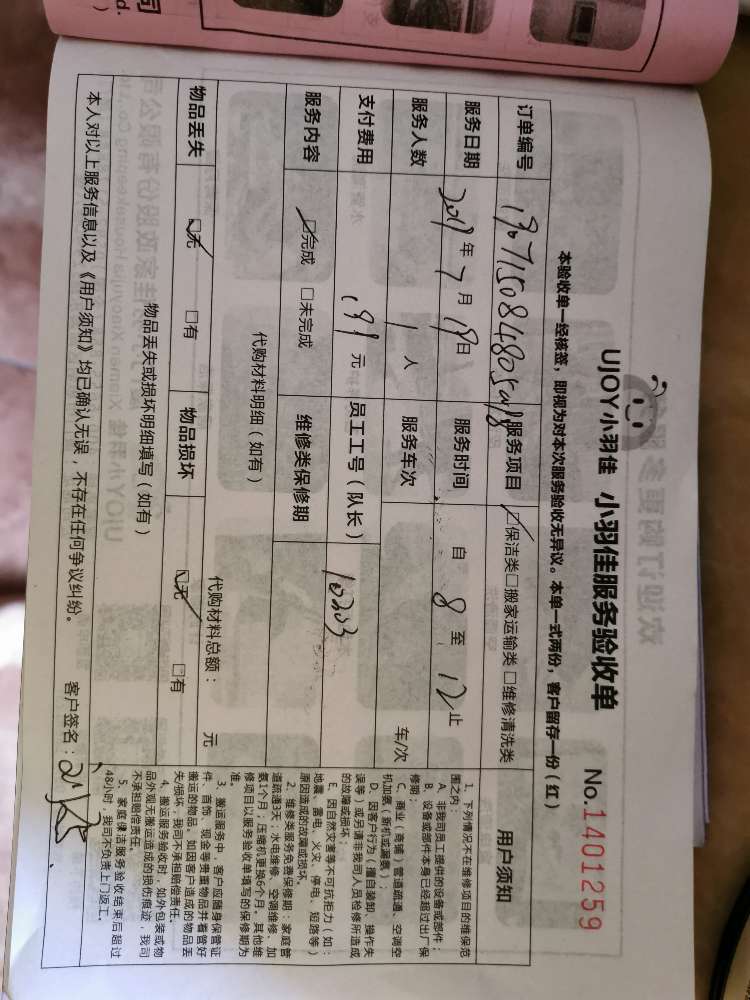 UJOY小羽佳 小羽佳服务验收单
No.1401259
本验收单一经核签，即视为对本次服务验收无异议。本单一式两份，客户留存一份（红）
订单编号 服务项目 ☑保洁类 □搬家运输类 □维修清洗类
服务日期 2019年7月19日 服务时间 自 8 至 12 止
服务人数 1 人 服务车次 车/次
支付费用 199 元 员工工号（队长） 10203
服务内容 ☑完成 □未完成 维修类保修期
代购材料明细（如有） 代购材料总额： 元
物品丢失 ☑无 □有 物品损坏 ☑无 □有
物品丢失或损坏明细填写（如有）
本人对以上服务信息以及《用户须知》均已确认无误，不存在任何争议纠纷。 客户签名：
用户须知
1、下列情况不在维修项目的维保范
围之内：
A、非我司员工提供的设备或部件；
B、设备或部件本身已经超过出厂保
修期；
C、商业（商铺）管道疏通、空调空
机加氨（新机或漏氨）；
D、因客户行为（擅自装卸、操作失
误等）或另请非我司人员检修所造成
的故障或损坏；
E、因自然灾害等不可抗拒力（如：
地震、雷电、火灾、停电、短路等）
原因造成的故障或损坏。
2、维修类服务免费保修期：家庭管
道疏通3天，水电维修、空调维修、加
氨1个月；压缩机更换6个月。其他维
修项目以服务验收单填写的保修期为
准。
3、搬运服务中，客户应随身保管证
件、首饰、现金等贵重物品并看管好
搬运的物品。如因客户造成的物品丢
失/损坏，我司不承担赔偿责任。
4、搬运服务验收时，如外包装或物
品外观无搬运造成的损伤痕迹，我司
不承担赔偿责任。
5、家庭保洁服务验收结束后超过
48小时，我司不负责上门返工。